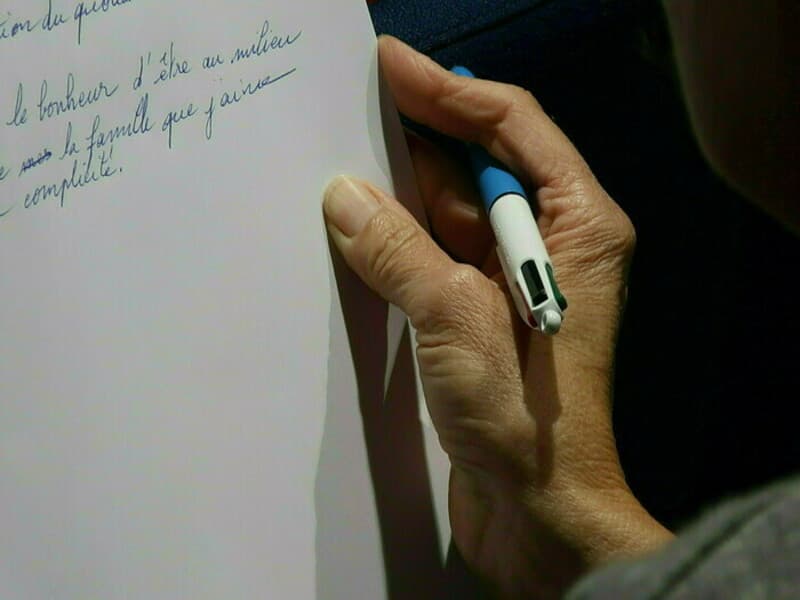 du
le bonheur d'être au milieu
la famille que j'aime
complicité.